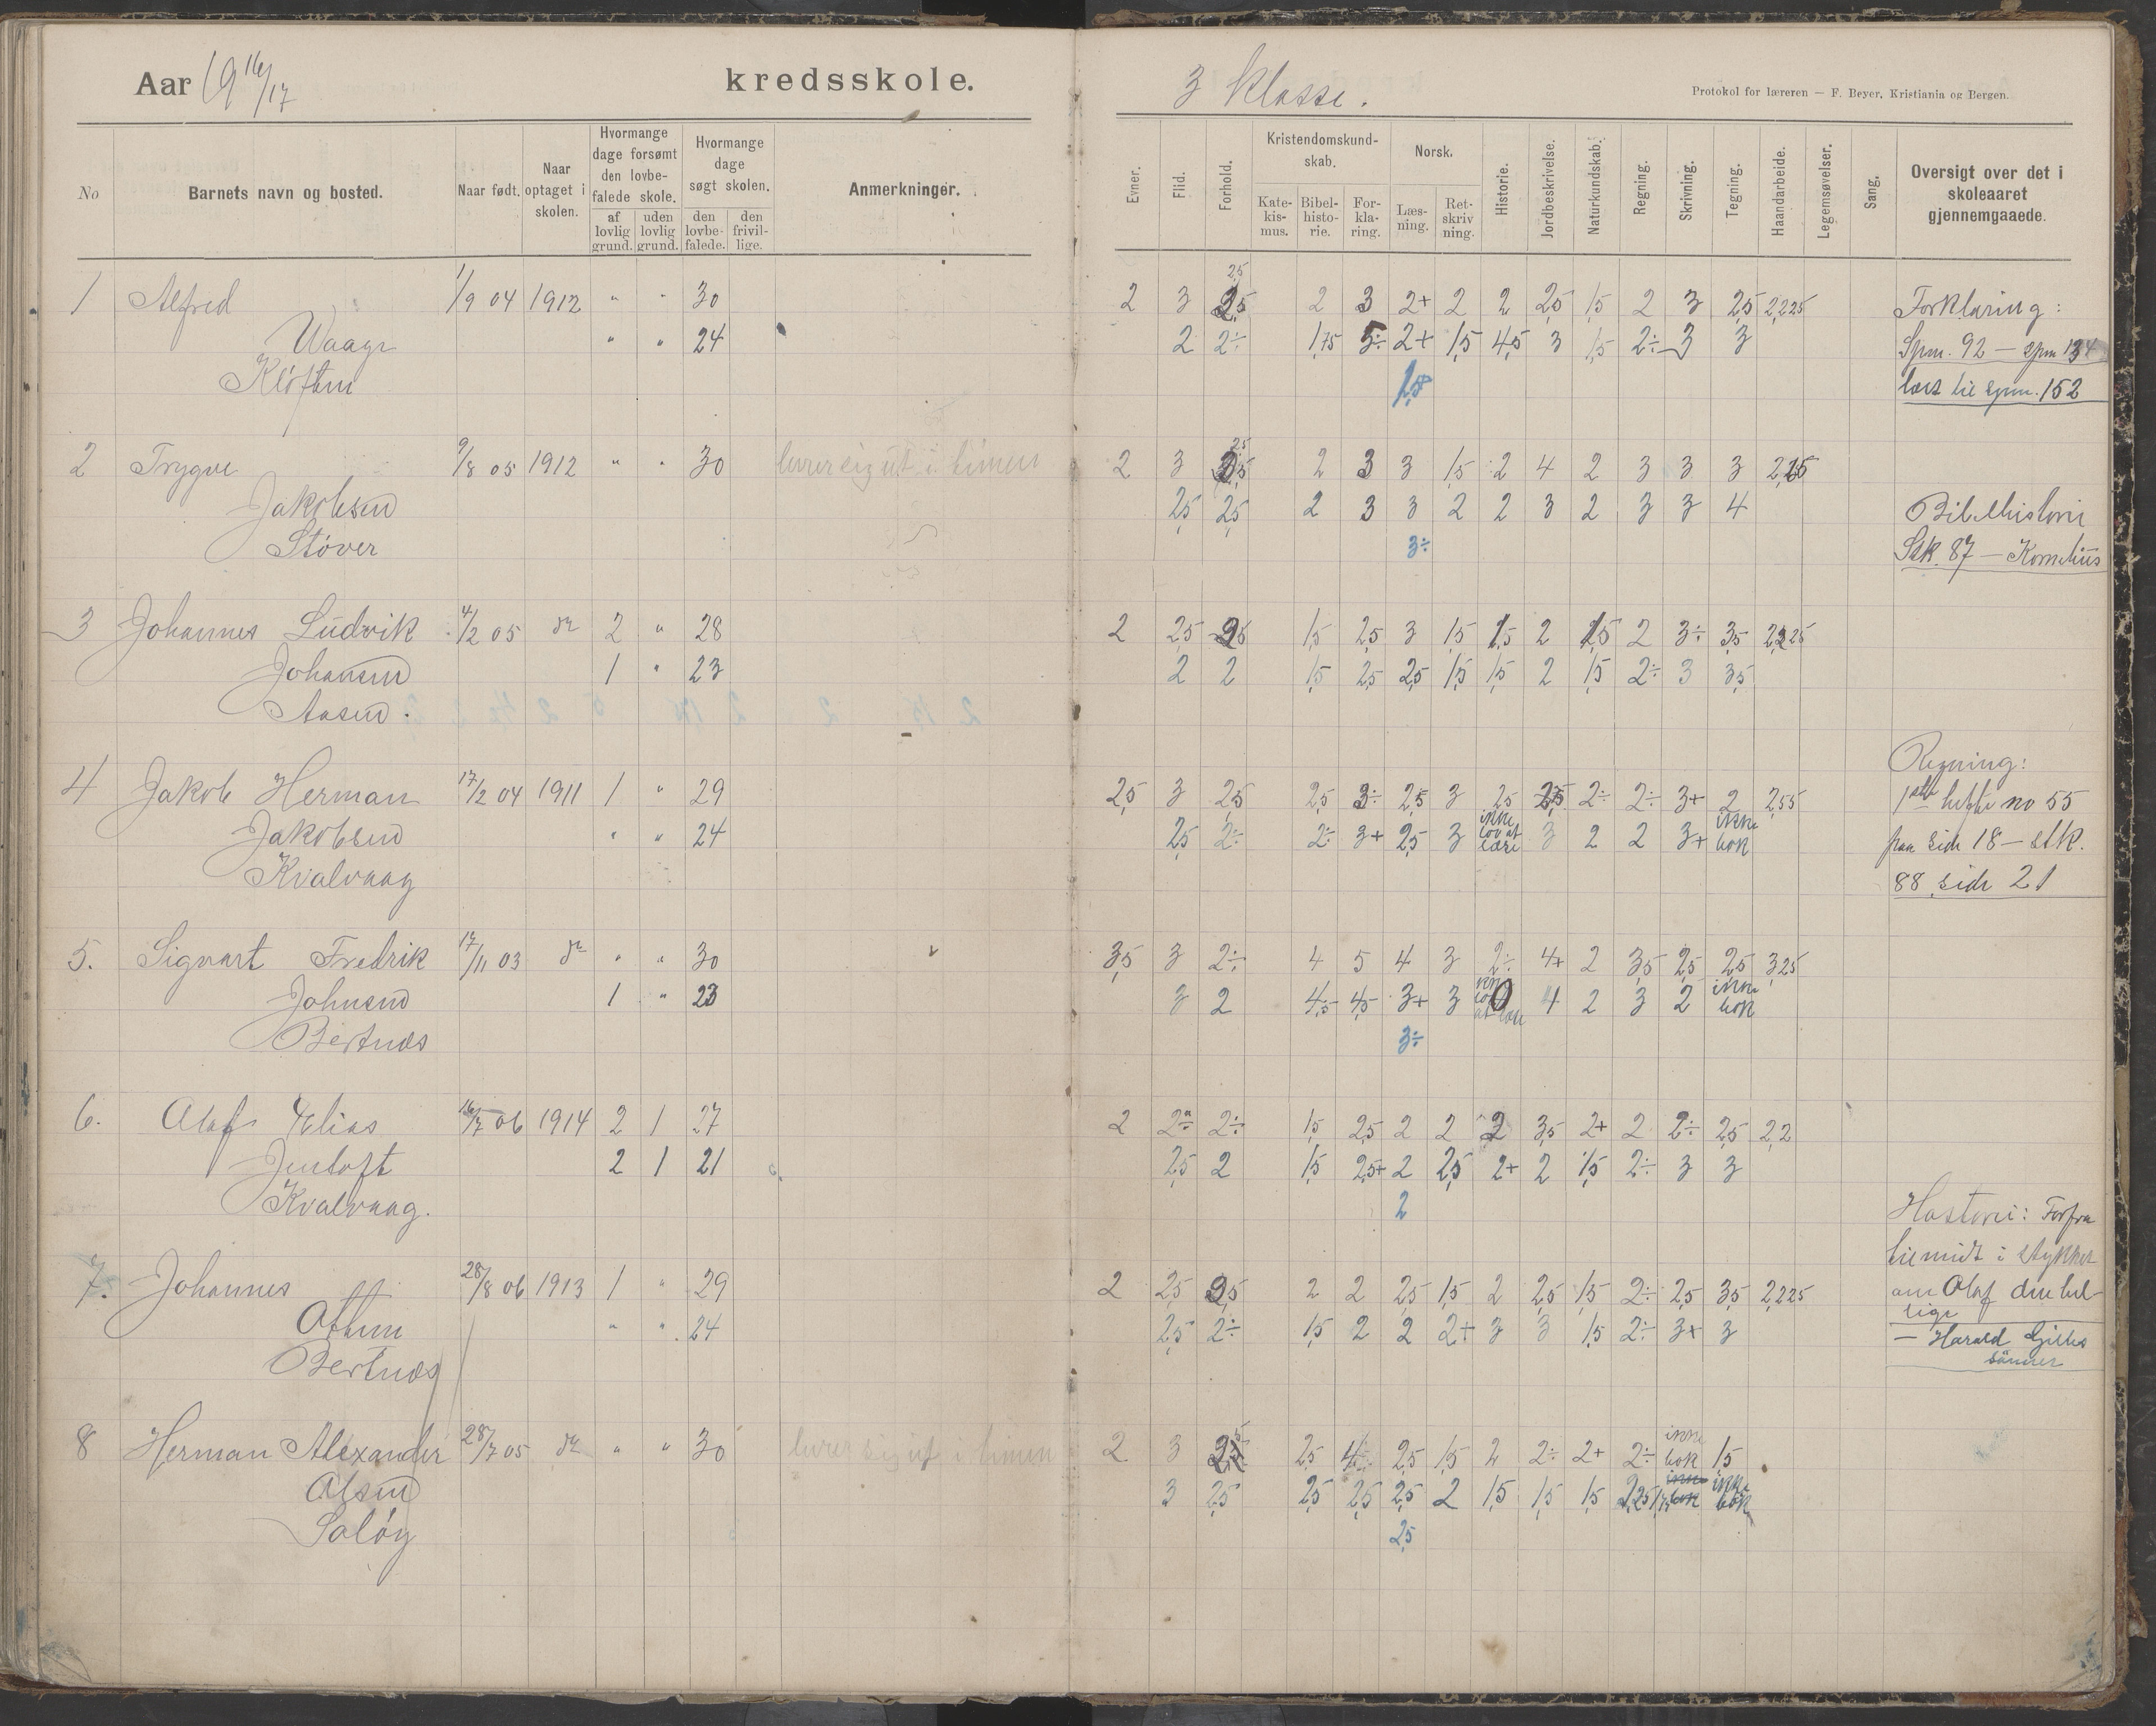 Aar 19 16/17 kredsskole.
3 Klasse.
Protokol for læreren — F. Beyer, Kristiania og Bergen.
No
Barnets navn og bosted.
Naar født.
Naar optaget i skolen.
Hvormange dage forsømt den lovbefalede skole.
af lovlig grund.
uden lovlig grund.
Hvormange dage søgt skolen.
den lovbe-falede.
den frivil-lige.
Anmerkninger.
Evner.
Flid.
Forhold.
Kristendomskund-skab.
Kate-kis-mus.
Bibel-histo-rie.
For-kla-ring.
Norsk.
Læs-ning.
Ret-skriv ning.
Historie.
Jordbeskrivelse.
Naturkundskab.
Regning.
Skrivning.
Tegning.
Haandarbeide.
Legemsøvelser.
Sang.
Oversigt over det i skoleaaret gjennemgaaede.
1 Alfred 1/9 04 1912 " " 30 2 3 2 3 2+ 2 2 2,5 1,5 2 3 2,5 2,225 Forklaring:
Waage " " 24 2 2÷ 1,75 5÷ 2+ 1,5 4,5 3 1,5 2÷ 3 3 Spm. 92 — spm 134
Kløften 1,5 læst til spm. 152
2 Trygve 9/8 05 1912 " " 30 lurer sig ut i timen 2 3 2 3 3 1,5 2 4 2 3 3 3 2,25
Jakobsen 2,5 2,5 2 3 3 2 2 3 2 3 3 4 Bibelhistorie
Støver 3÷ Stk. 87 — Kornelius
3 Johannes Ludvik 4/2 05 do 2 " 28 2 2,5 1,5 2,5 3 1,5 1,5 2 1,5 2 3÷ 3,5
Johansen 1 " 23 2 2 1,5 2,5 2,5 1,5 1,5 2 1,5 2÷ 3 3,5
Aasen.
4 Jakob Herman 17/2 04 1911 1 " 29 2,5 3 2,5 2,5 3÷ 2,5 3 2,5 2,5 2÷ 2÷ 3+ 2 2,55 Regning:
1ste hefte no 55
Jakobsen " " 24 2,5 2÷ 2÷ 3+ 2,5 3 ikke lov at lære 3 2 2 3+ ikke bok paa side 18 — stk.
Kvalvaag 88 side 21
5. Sigvart Fredrik 17/11 03 do " " 30 3,5 3 2÷ 4 5 4 3 2÷ 4+ 2 3,5 2,5 2,5 3,25
Johnsen 1 " 23 3 2 4,5 4,5 3+ 3 0 4 2 3 2 ikke bok
Bertnes 3÷
6. Olaf Elias 16/7 06 1914 2 1 27 2 2÷ 2÷ 1,5 2,5 2 2 2 3,5 2+ 2 2÷ 2,5 2,2
Jentoft 2 1 21 2,5 2 1,5 2,5+ 2 2,5 2+ 2 1,5 2÷ 3 3
Kvalvaag. 2 Historie: Forfra
til midt i stykket
7. Johannes 28/8 06 1913 1 " 29 2 2,5 2,5 2 2 2,5 1,5 2 2,5 1,5 2÷ 2,5 3,5 2,225 om Olaf den hel-
lige
Othim " " 24 2,5 2÷ 1,5 2 2 2+ 3 3 1,5 2÷ 3+ 3 — Harald Gilles
Bertnes sønner
8 Herman Alexander 28/7 05 do " " 30 lurer sig ut i timen 2 3 2,5 4÷ 2,5 1,5 2 2÷ 2+ 2÷ ikke bok 1,5
Olsen 3 2,5 2,5 2,5 2,5 2 1,5 1,5 1,5 2,25 ikke bok ikke bok
Saløy 2,5